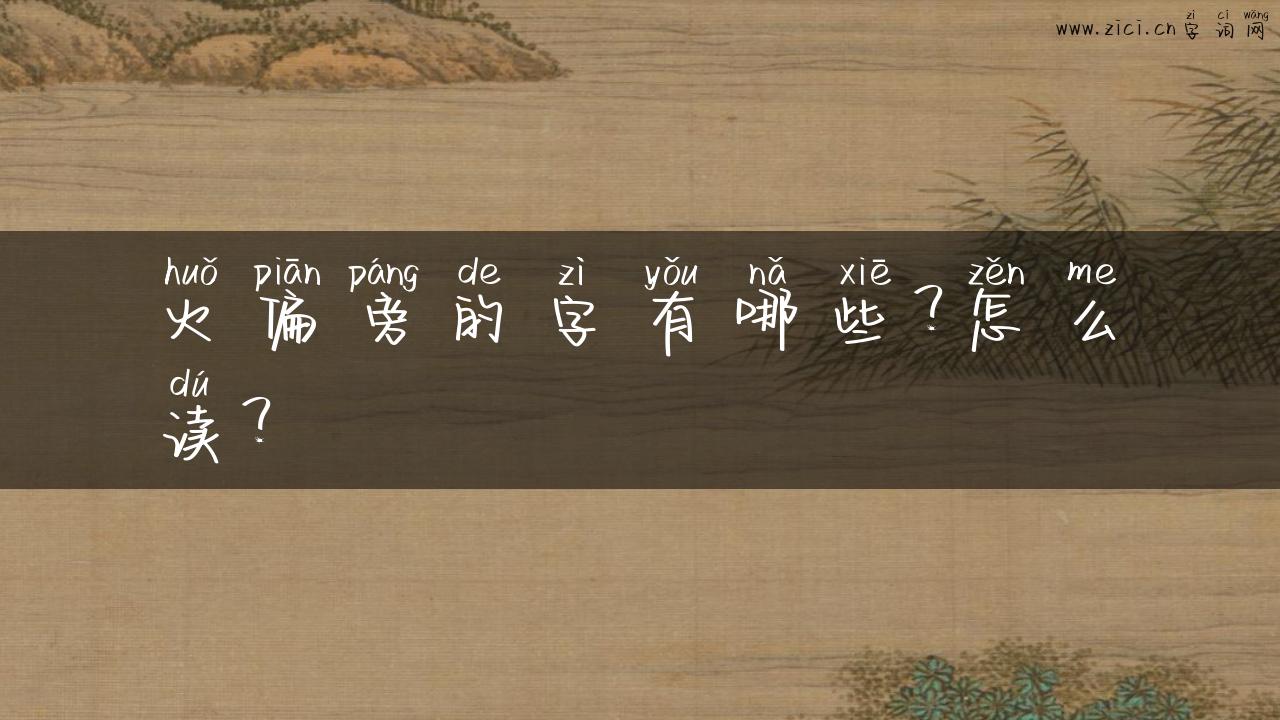 zì cí wǎng
www.zici.cn字词网
huǒ piān páng de zì yǒu nǎ xiē zěn me
火偏旁的字有哪些?怎么
dú
读?